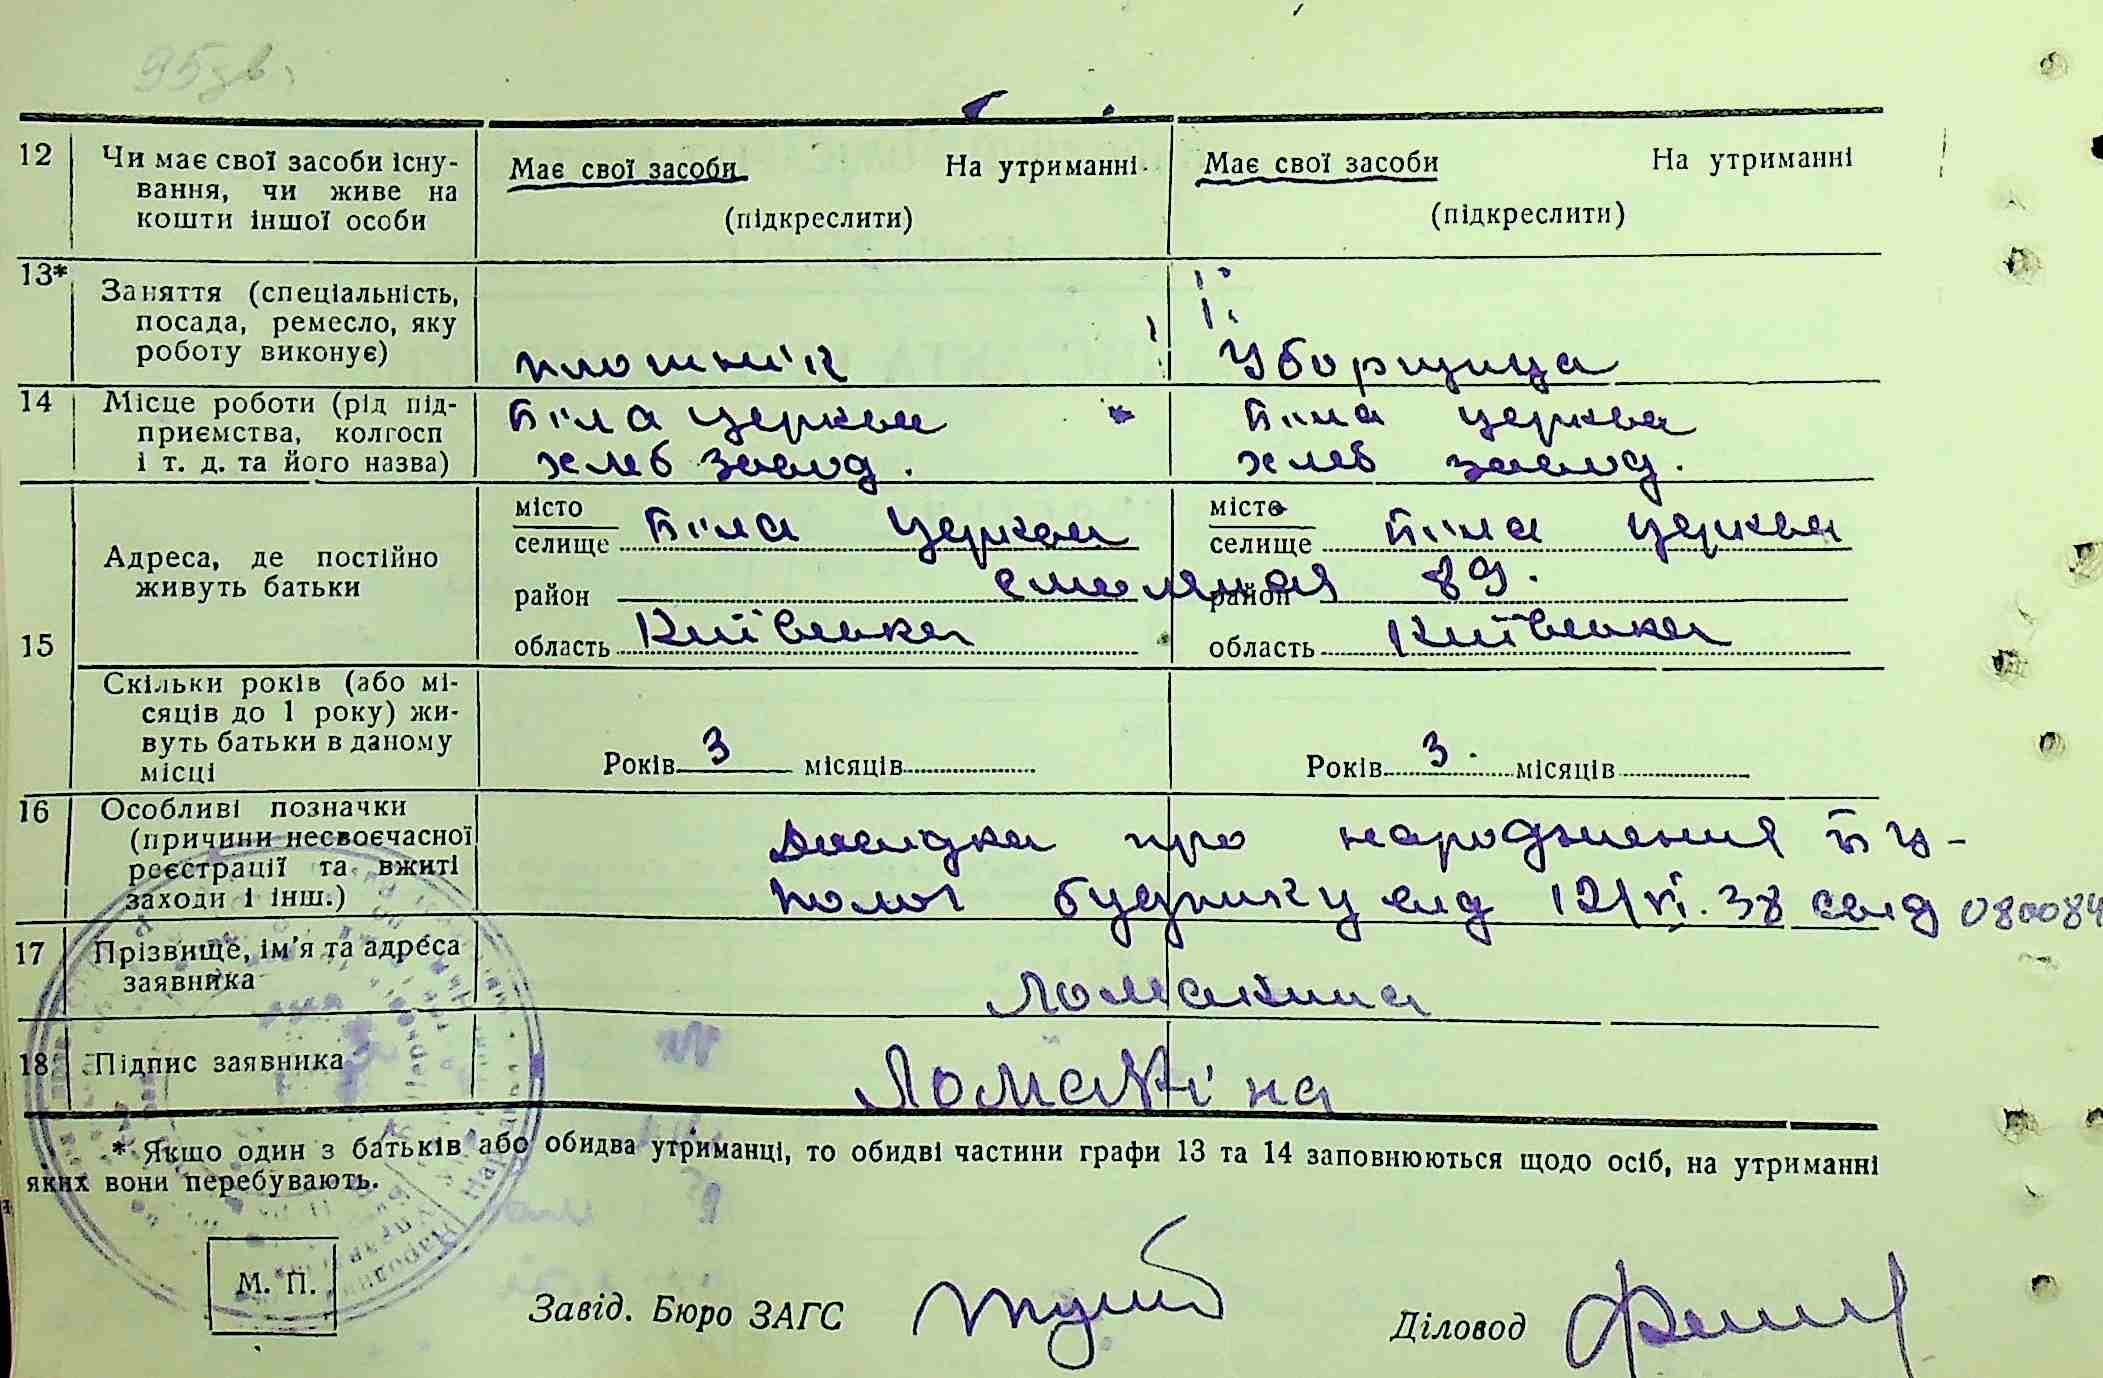 95зв.
12 Чи має свої засоби існу- Має свої засоби На утриманні Має свої засоби На утриманні
вання, чи живе на
кошти іншої особи (підкреслити) (підкреслити)
13* Заняття (спеціальність,
посада, ремесло, яку
роботу виконує) плотнік Уборщица
14 Місце роботи (рід під- Біла церква Біла церква
приємства, колгосп
і т. д. та його назва) хлеб завод. хлеб завод.
місто місто
селище Біла церква селище Біла церква
Адреса, де постійно
живуть батьки район смоляная район 89.
15 область Київська область Київська
Скільки років (або мі-
сяців до 1 року) жи-
вуть батьки в даному
місці Років 3 місяців Років 3. місяців
16 Особливі позначки
(причини несвоєчасної Довидка про народжения БЦ-
реєстрації та вжиті
заходи і інш.) полог будинку вид 12/VI.38 свид 080084
17 Прізвище, ім'я та адреса
заявника Ломакина
18 Підпис заявника Ломакіна
* Якщо один з батьків або обидва утриманці, то обидві частини графи 13 та 14 заповнюються щодо осіб, на утриманні
яких вони перебувають.
М. П.
Завід. Бюро ЗАГС Діловод